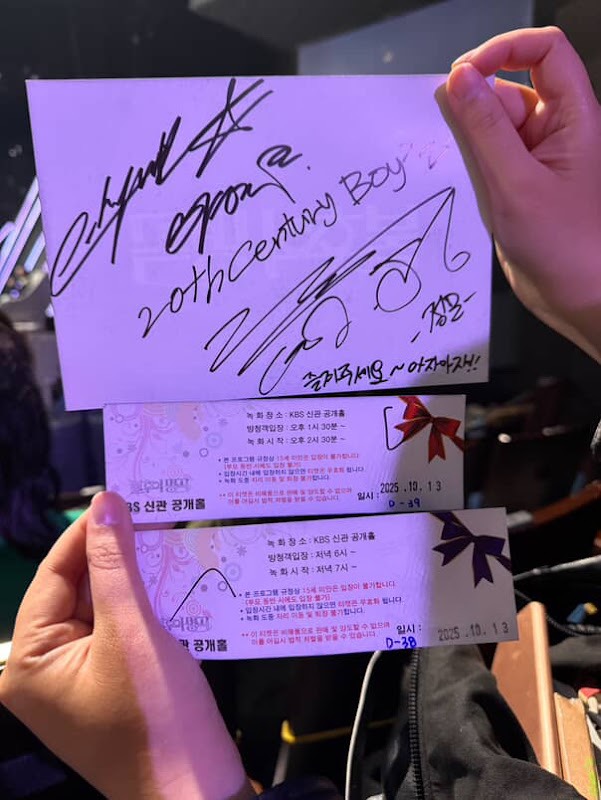 20th Century Boy
-정문-
즐겨주세요~아자아자!!
녹화 장소 : KBS 신관 공개홀
방청객입장 : 오후 1시 30분~
녹화 시작 : 오후 2시 30분~
• 본 프로그램 규정상 15세 미만은 입장이 불가합니다.
(부모 동반 시에도 입장 불가)
• 입장시간 내에 입장하지 않으면 티켓은 무효화 됩니다.
• 녹화 도중 자리 이동 및 퇴장 불가합니다.
** 이 티켓은 비매품으로 판매 및 양도할 수 없으며
이를 어길시 법적 처벌을 받을 수 있습니다.
BS 신관 공개홀
일시 : 2025.10.13
D-39
녹화 장소 : KBS 신관 공개홀
방청객입장 : 저녁 6시~
녹화 시작 : 저녁 7시~
• 본 프로그램 규정상 15세 미만은 입장이 불가합니다.
(부모 동반 시에도 입장 불가)
• 입장시간 내에 입장하지 않으면 티켓은 무효화 됩니다.
• 녹화 도중 자리 이동 및 퇴장 불가합니다.
** 이 티켓은 비매품으로 판매 및 양도할 수 없으며
이를 어길시 법적 처벌을 받을 수 있습니다.
관 공개홀
일시 : 2025.10.13
D-38